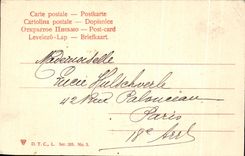 Carte postale — Postkarte
Cartolina postale — Dopisnice
Открытое Письмо — Post-card
Levelező-Lap — Briefkaart
Mademoiselle
Lucie
Paris
18e Arrt
D. T. C., L. Ser. 205. No. 3.